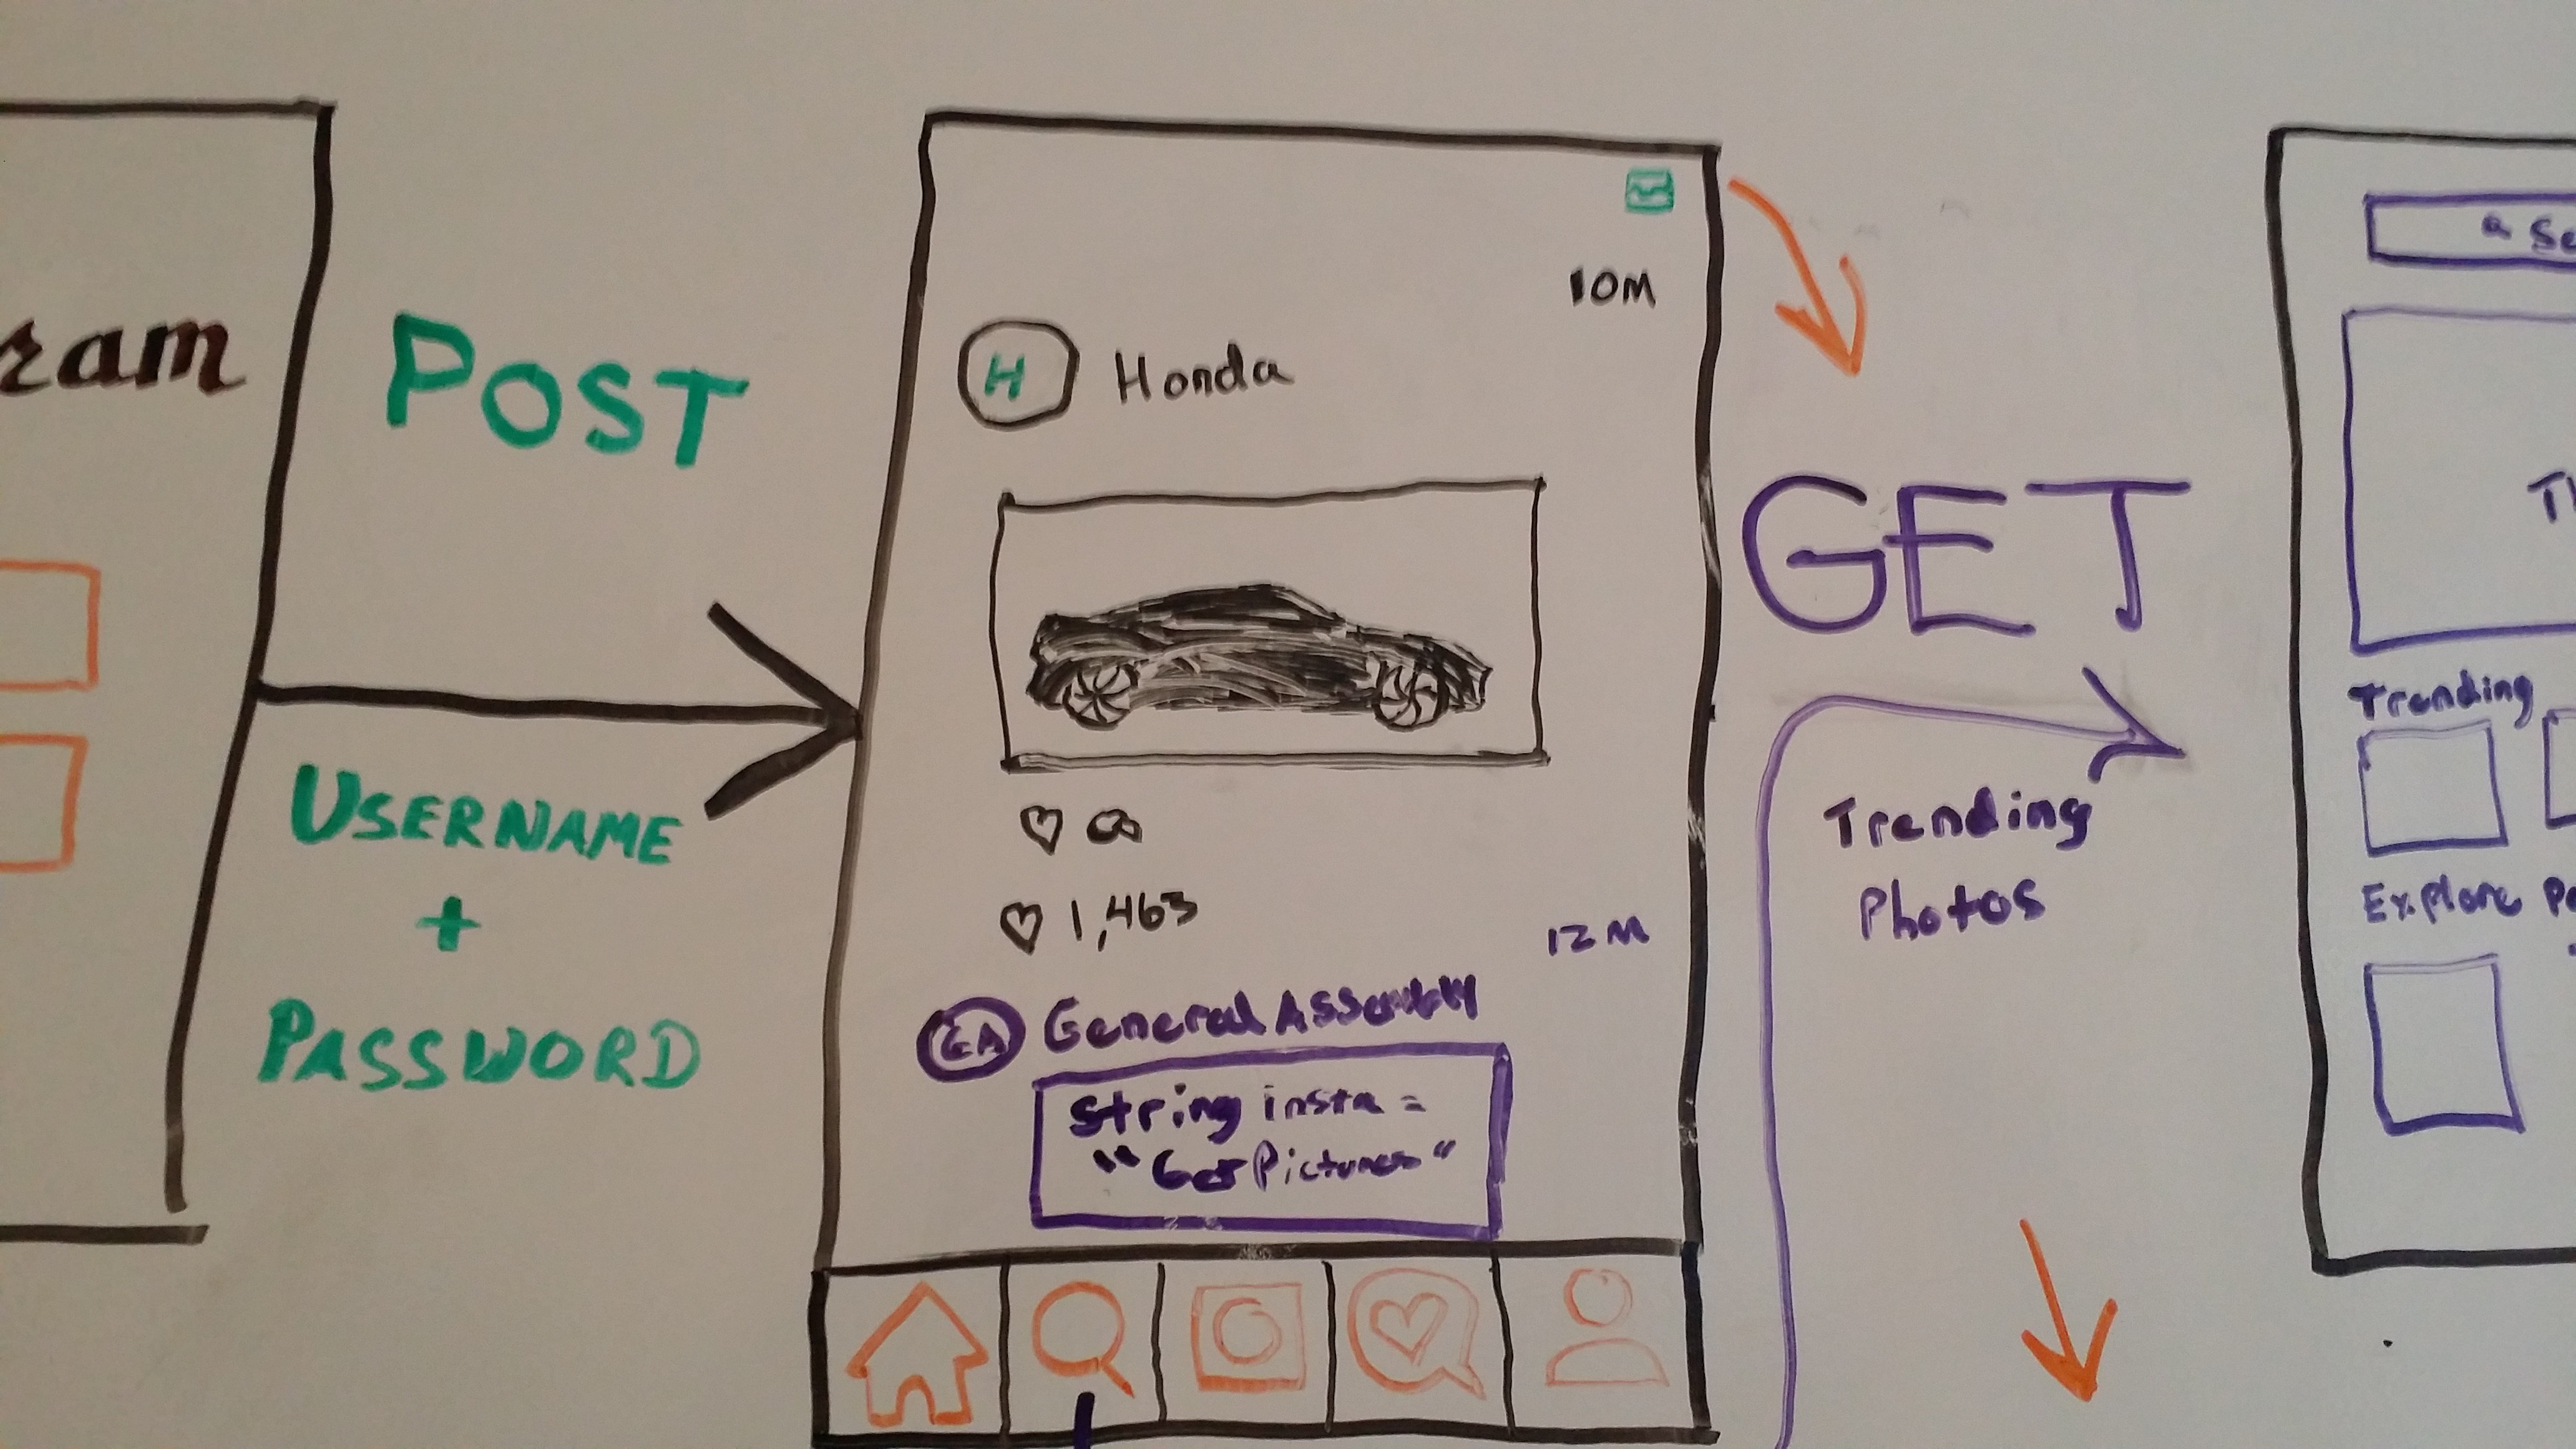 ram
POST
USERNAME
+
PASSWORD
10M
H
Honda
1,463
12M
GA
General Assembly
String insta =
"Get Pictures"
GET
Trending
Photos
Trending
Explore